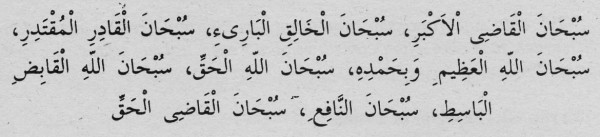 سُبْحَانَ الْقَاضِى الْاَكْبَرِ، سُبْحَانَ الْخَالِقِ الْبَارِىءِ، سُبْحَانَ الْقَادِرِ الْمُقْتَدِرِ،
سُبْحَانَ اللّٰهِ الْعَظِيمِ وَبِحَمْدِهِ، سُبْحَانَ اللّٰهِ الْحَقِّ، سُبْحَانَ اللّٰهِ الْقَابِضِ
الْبَاسِطِ، سُبْحَانَ النَّافِعِ، سُبْحَانَ الْقَاضِى الْحَقِّ